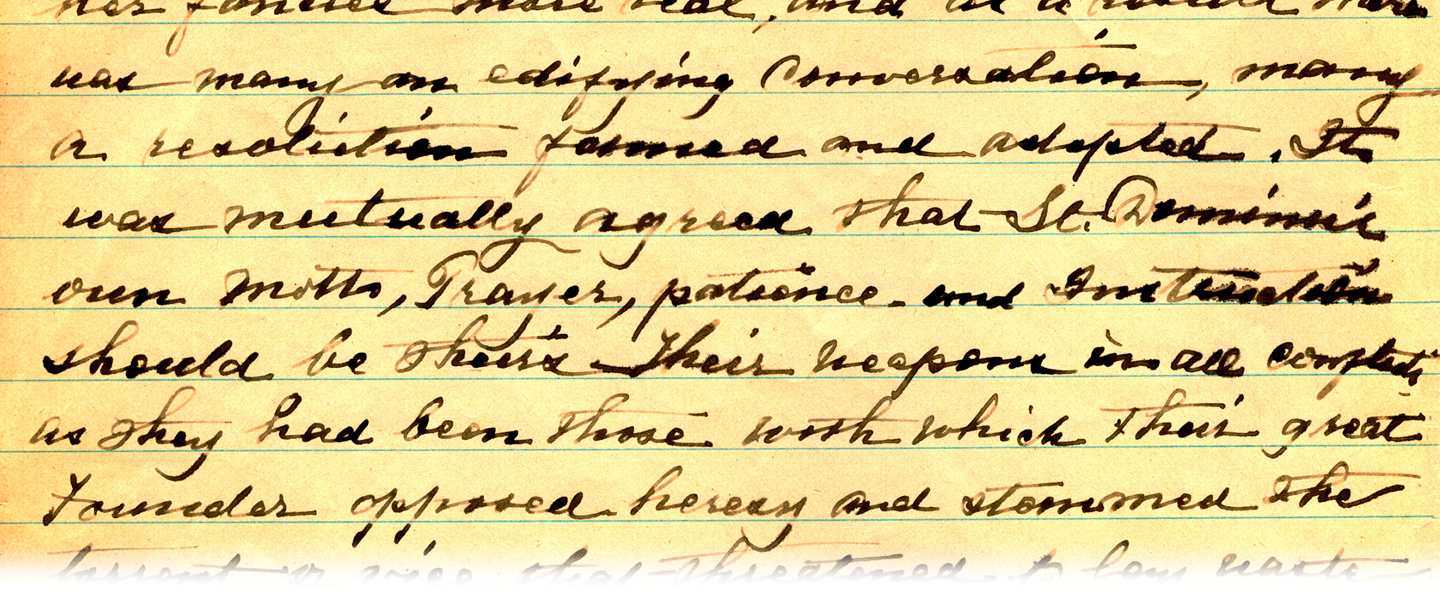 her fancies more real, and as a result there
was many an edifying Conversation, many
a resolution formed and adopted. It
was mutually agreed that St. Dominic's
own motto, Prayer, patience and Instruction
should be theirs Their weapons in all conflicts
as they had been those with which their great
Founder opposed heresy and stemmed the
torrent of vice that threatened to lay waste